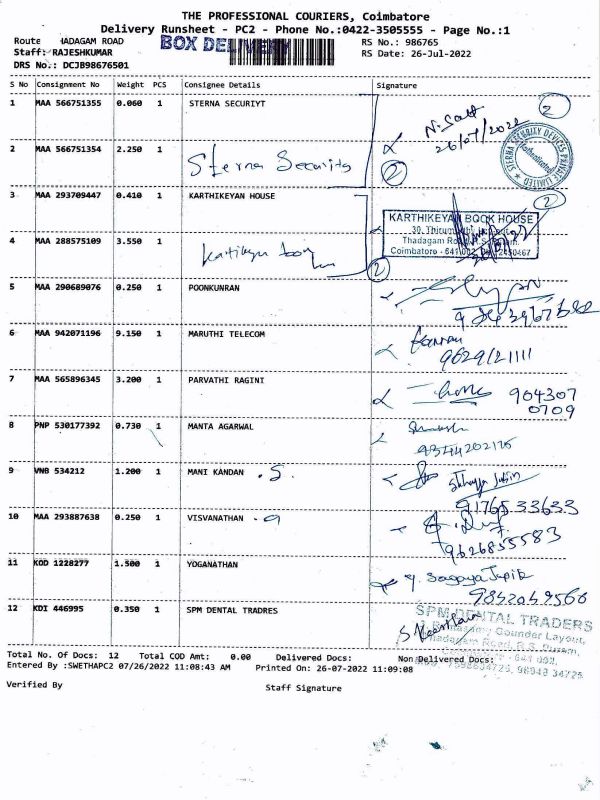 THE PROFESSIONAL COURIERS, Coimbatore
Delivery Runsheet - PC2 - Phone No.:0422-3505555 - Page No.:1
Route HADAGAM ROAD BOX DELIVERY RS No.: 986765
Staff: RAJESHKUMAR RS Date: 26-Jul-2022
DRS No.: DCJB98676501
S No Consignment No Weight PCS Consignee Details Signature
1 MAA 566751355 0.060 1 STERNA SECURIYT
2
26/07/2022
STERNA SECURITY DEVICES PRIVATE LIMITED
2 MAA 566751354 2.250 1 Sterna Security 2
3 MAA 293709447 0.410 1 KARTHIKEYAN HOUSE 2
KARTHIKEYAN BOOK HOUSE
Thadagam Road
Coimbatore - 641 002
4 MAA 288575109 3.550 1 2
5 MAA 290689076 0.250 1 POONKUNRAN
6 MAA 942071196 9.150 1 MARUTHI TELECOM
9629121111
7 MAA 565896345 3.200 1 PARVATHI RAGINI 904307
0709
8 PNP 530177392 0.730 1 MANTA AGARWAL
9344202175
9 VNB 534212 1.200 1 MANI KANDAN .S.
9176533633
10 MAA 293887638 0.250 1 VISVANATHAN
9626855583
11 KOD 1228277 1.500 1 YOGANATHAN
9842049566
12 KDI 446995 0.350 1 SPM DENTAL TRADRES
SPM DENTAL TRADERS
Gounder Layout,
Thadagam Road, R.S. Puram,
Coimbatore - 641 002.
Total No. Of Docs: 12 Total COD Amt: 0.00 Delivered Docs: Non Delivered Docs:
Entered By :SWETHAPC2 07/26/2022 11:08:43 AM Printed On: 26-07-2022 11:09:08
Verified By Staff Signature